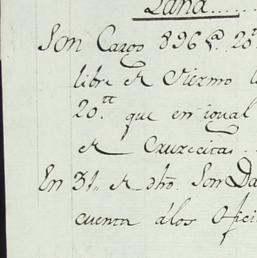 Lana......
Son Cargo 896 @.s 20
libre de Diezmo
20.tt que en igual
de Cruzecitas.
En 31,, de dho. Son Da
cuenta álos Ofici